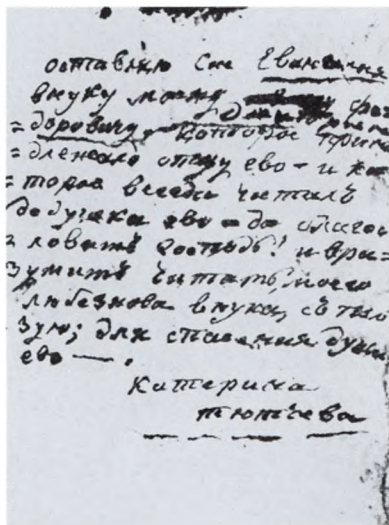 оставлю сие Евангелие
внуку моему Фео
=доровичу, которое прина
=длежало отцу ево – и ко
=торое всегда читалъ
дедушка ево – да благос
=ловитъ господь! и вра=
зумитъ читать, моего
любезнова внука, съ пол
зую; для спасения души
ево —.
Катерина
Тютчева